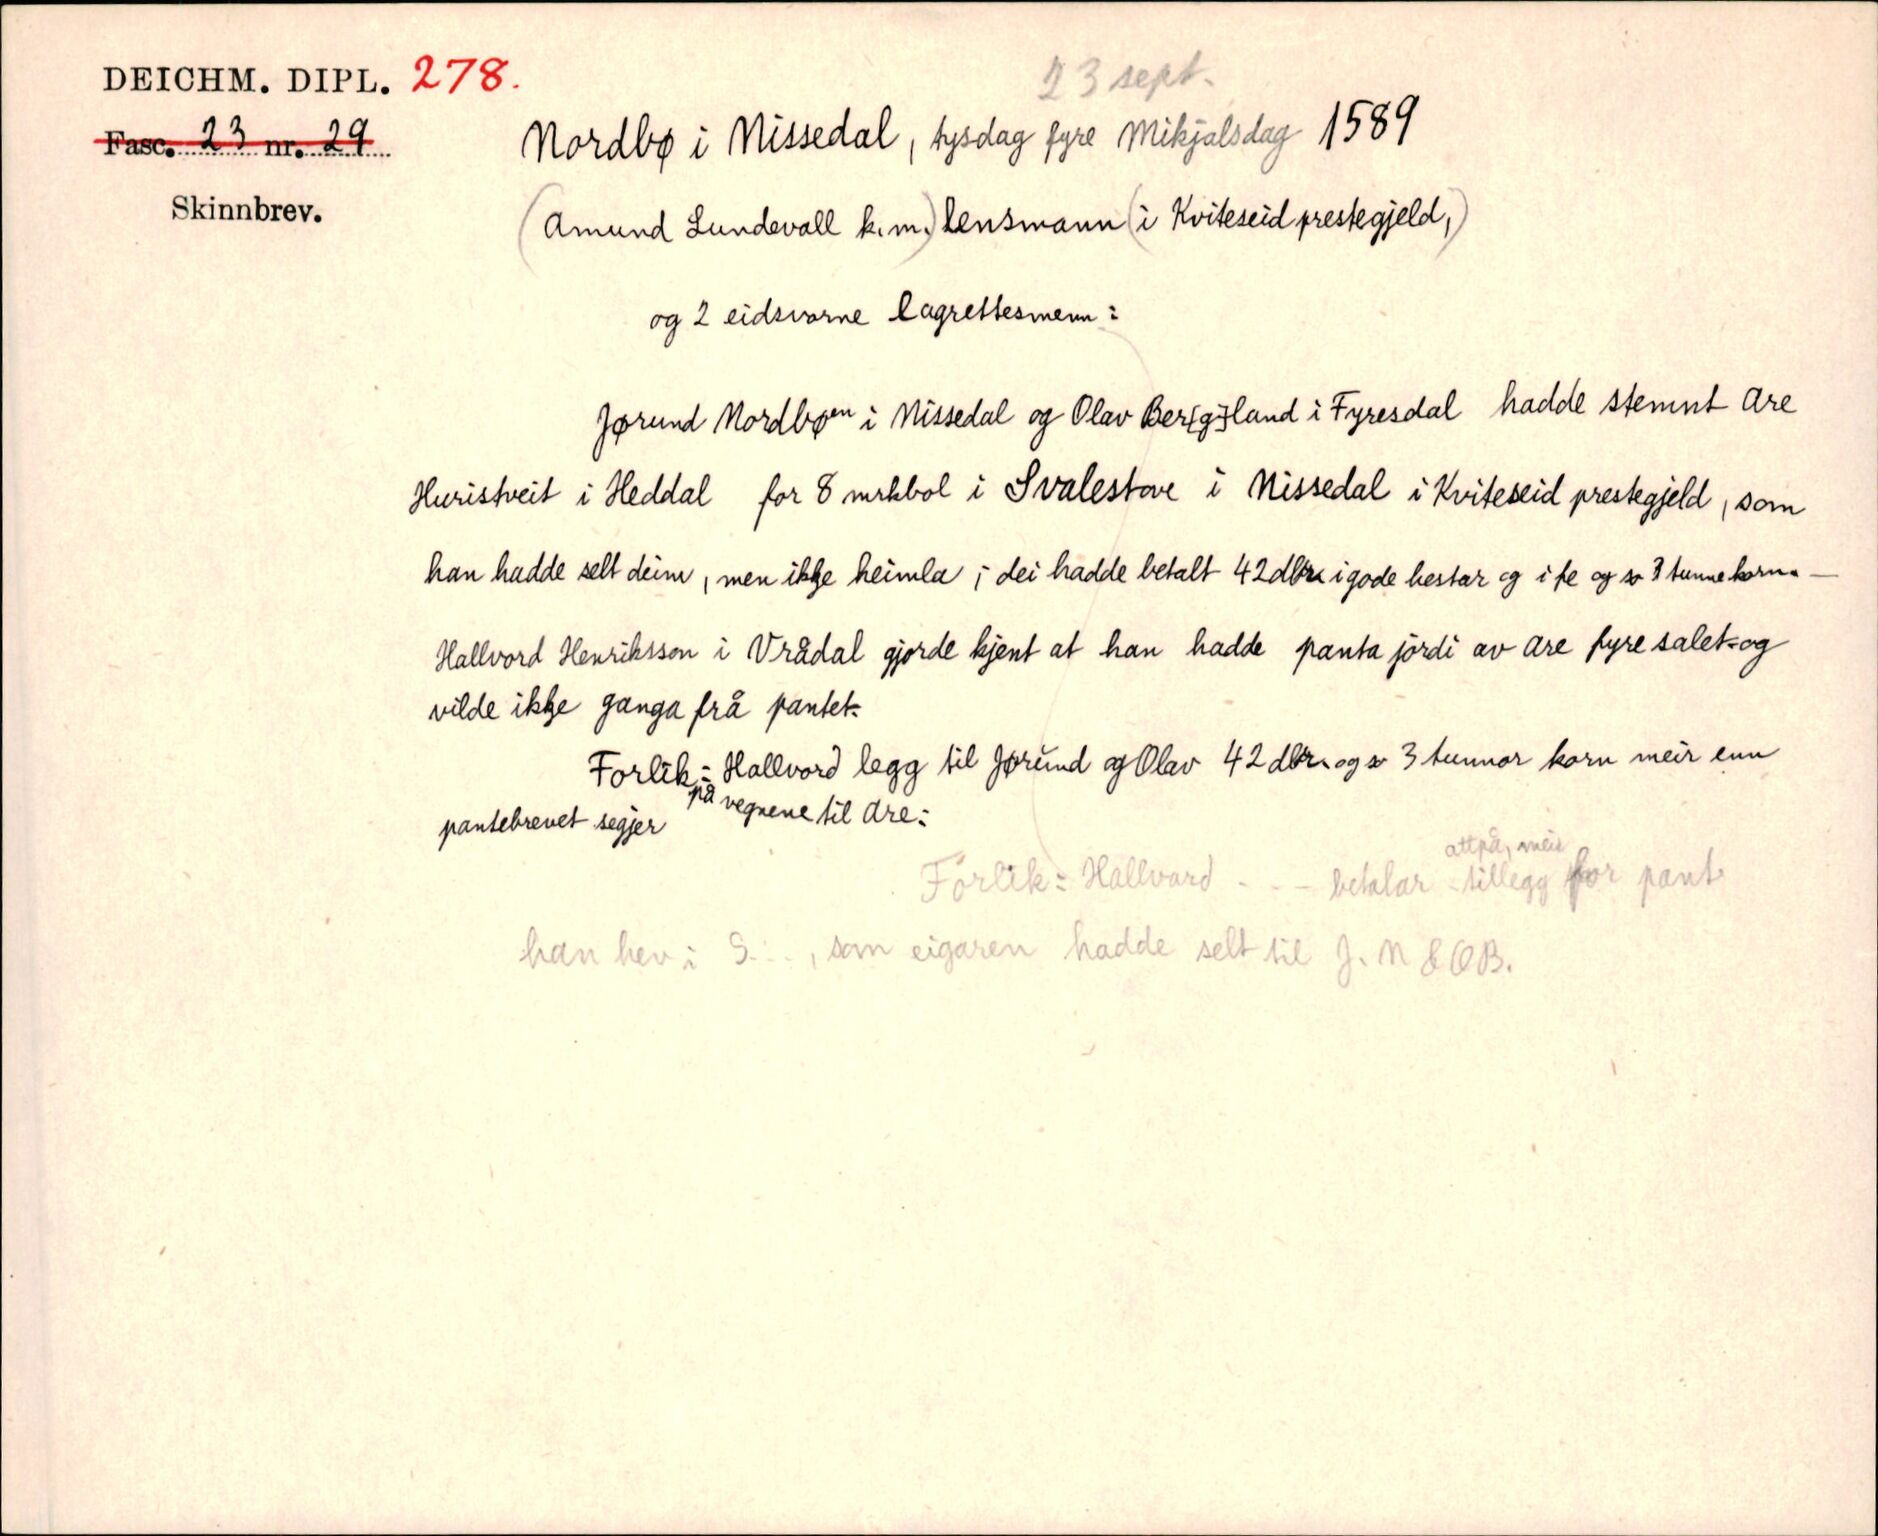 DEICHM. DIPL. 278.
23 sept.
Fasc. 23 nr. 29
Nordbø i Nissedal, tysdag fyre Mikjalsdag 1589
Skinnbrev.
(Amund Lundevall k.m.) lensmann (i Kviteseid prestegjeld,)
og 2 eidsvorne lagrettesmenn:
Jørund Nordbøen i Nissedal og Olav Ber[g]land i Fyresdal hadde stemnt Are
Huristveit i Heddal for 8 mrkbol i Svalestove i Nissedal i Kviteseid prestegjeld, som
han hadde selt deim, men ikkje heimla; dei hadde betalt 42 dlr. i gode hestar og i fe og so 3 tunne korn. —
Hallvord Henriksson i Vrådal gjorde kjent at han hadde panta jordi av Are fyre salet og
vilde ikkje ganga frå pantet.
Forlik: Hallvord legg til Jørund og Olav 42 dlr. og so 3 tunnor korn meir enn
pantebrevet segjer på vegnene til Are.
attpå, meir
Forlik: Hallvard - - - betalar tillegg for pant
han hev i S..., som eigaren hadde selt til J. N & O B.